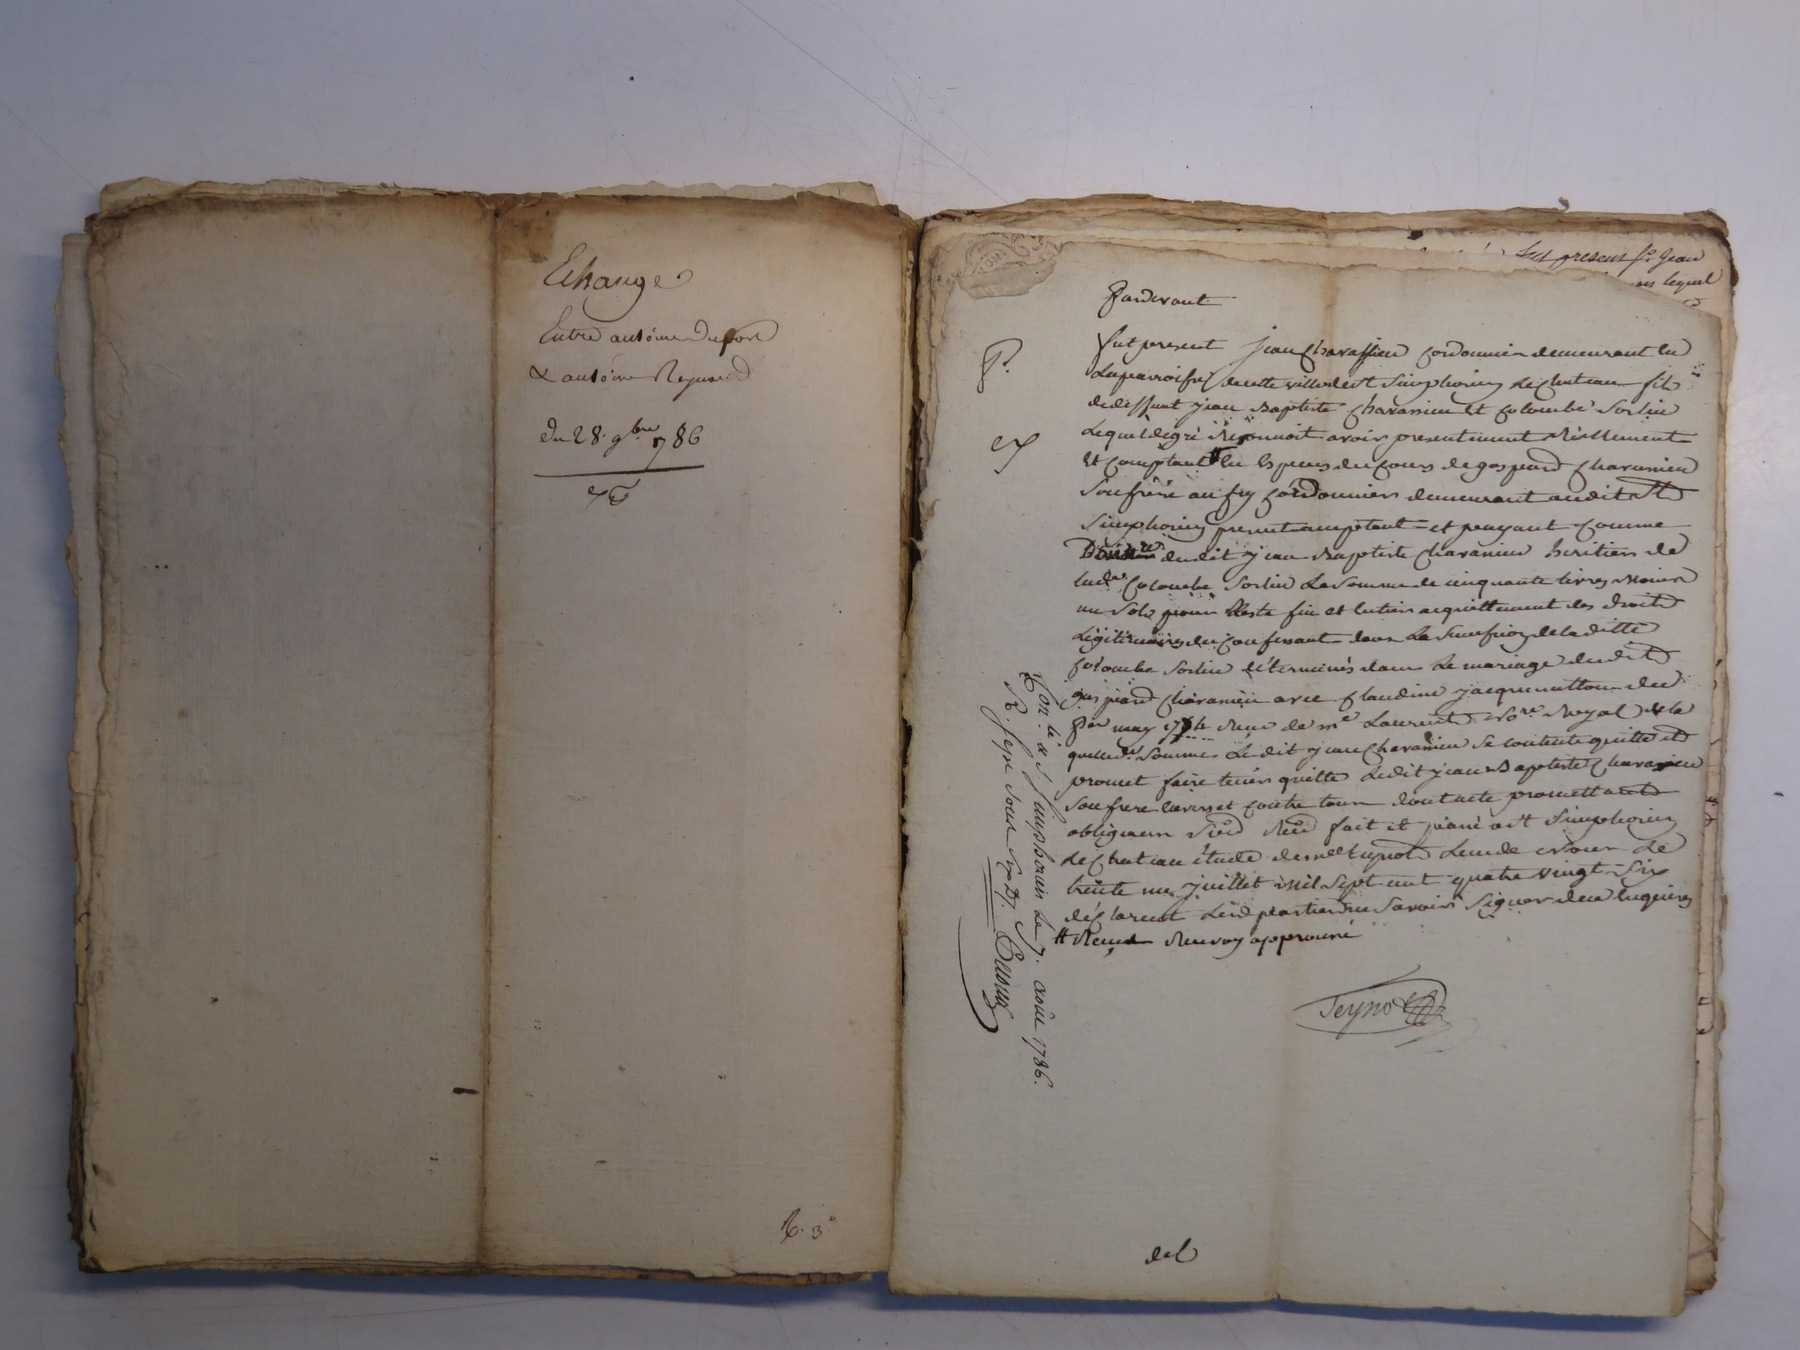 Echange
Entre antoine Duport
& antoine Reynard
du 28. 9bre 1786
R. 3"
fut present sr. Jean
lequel
Pardevant
P.
fut present jean Charassieu Cordonnier demeurant en
la parroisse de cette ville de st Simphorien le Chateau fils
de deffunt jean Baptiste Charanieu et Colombe Sorlin
Lequel de gré Reconnoit avoir presentement Réellement
et Comptant # en Especes du Cours de gaspard Charanieu
Son frere aussy Cordonnier demeurant audit st
Simphorien present acceptant et payant Comme
dudit jean Baptiste Charanieu heritier de
lade Colombe Sorlin La Somme de cinquante livres moins
un Sols pour Reste fin et entier acquittement des droits
Légitimaires du Confessant dans La Succession de laditte
Colombe Sorlin déterminés dans Le mariage dudit
gaspard Charanieu avec Claudine jacquemetton du
per may Reçu de me Laurent Nore Royal de la
quelle de Somme Ledit jean Charanieu Se contente quitte et
promet faire tenir quitte Ledit jean Baptiste Charanieu
Son frere envers et Contre tous dont acte promettant
obligeans Soud Rend fait et passé a st Simphorien
Le Chateau étude de me teynot L'un de Nous Le
trente un juillet mil Sept cent quatre vingt Six
déclarent Lesd parties ne Savoir Signer de ce Enquises
# Reçu Renvoy approuvé
Teynot
Conlé a St. Simphorien le 7. aoust 1786.
R. Sept sous six D.
del